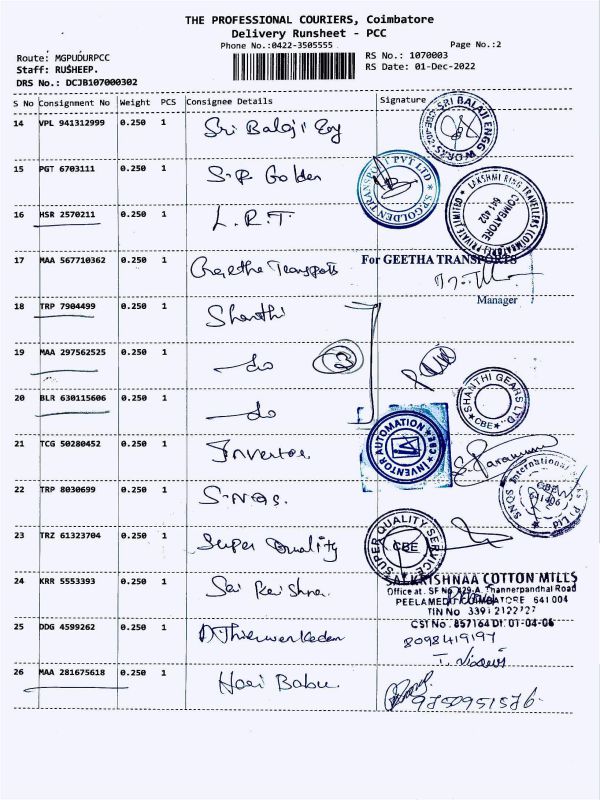 THE PROFESSIONAL COURIERS, Coimbatore
Delivery Runsheet - PCC
Phone No.:0422-3505555 Page No.:2
Route: MGPUDURPCC RS No.: 1070003
Staff: RUSHEEP. RS Date: 01-Dec-2022
DRS No.: DCJB107000302
S No Consignment No Weight PCS Consignee Details Signature
14 VPL 941312999 0.250 1 Sri Balaji Eng SRI BALAJI ENGG WORKS
15 PGT 6703111 0.250 1 S.P Golden S.P.GOLDEN TRANSPORT PVT LTD
16 HSR 2570211 0.250 1 L.R.T. LAKSHMI RING TRAVELLERS (COIMBATORE) PRIVATE LIMITED COIMBATORE 641 402
17 MAA 567710362 0.250 1 Geetha Transports For GEETHA TRANSPORTS
Manager
18 TRP 7904499 0.250 1 Shanthi
19 MAA 297562525 0.250 1 do 3
20 BLR 630115606 0.250 1 do SHANTHI GEARS LTD. CBE
21 TCG 50280452 0.250 1 Inventor INVENTOR AUTOMATION CBE
22 TRP 8030699 0.250 1 S.N.Q.S. SNQS International
23 TRZ 61323704 0.250 1 Super Quality SUPER QUALITY SERVICES CBE
24 KRR 5553393 0.250 1 Sai Krishna SAI KRISHNAA COTTON MILLS
Office at. SF No. 429-A, Thannerpandhal Road
PEELAMEDU COIMBATORE 641 004
TIN No
CST No. 857164 Dt. 01-04-06
25 DDG 4599262 0.250 1 8098419197
26 MAA 281675618 0.250 1 Hari Babu 9750951526